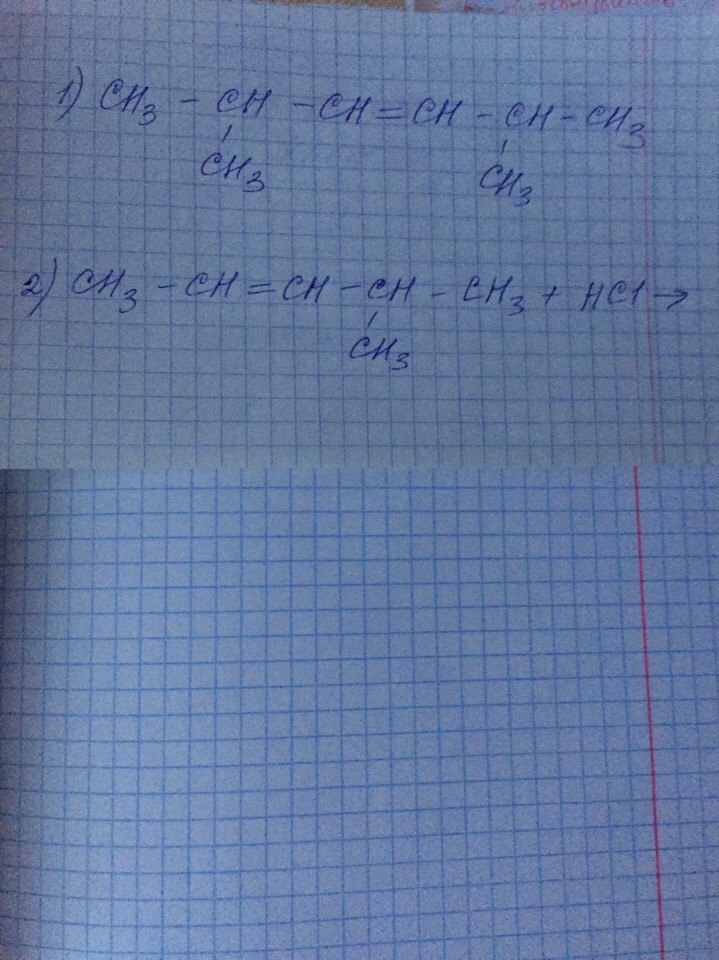 1) CH3 - CH - CH = CH - CH - CH3
CH3 CH3
2) CH3 - CH = CH - CH - CH3 + HCl →
CH3